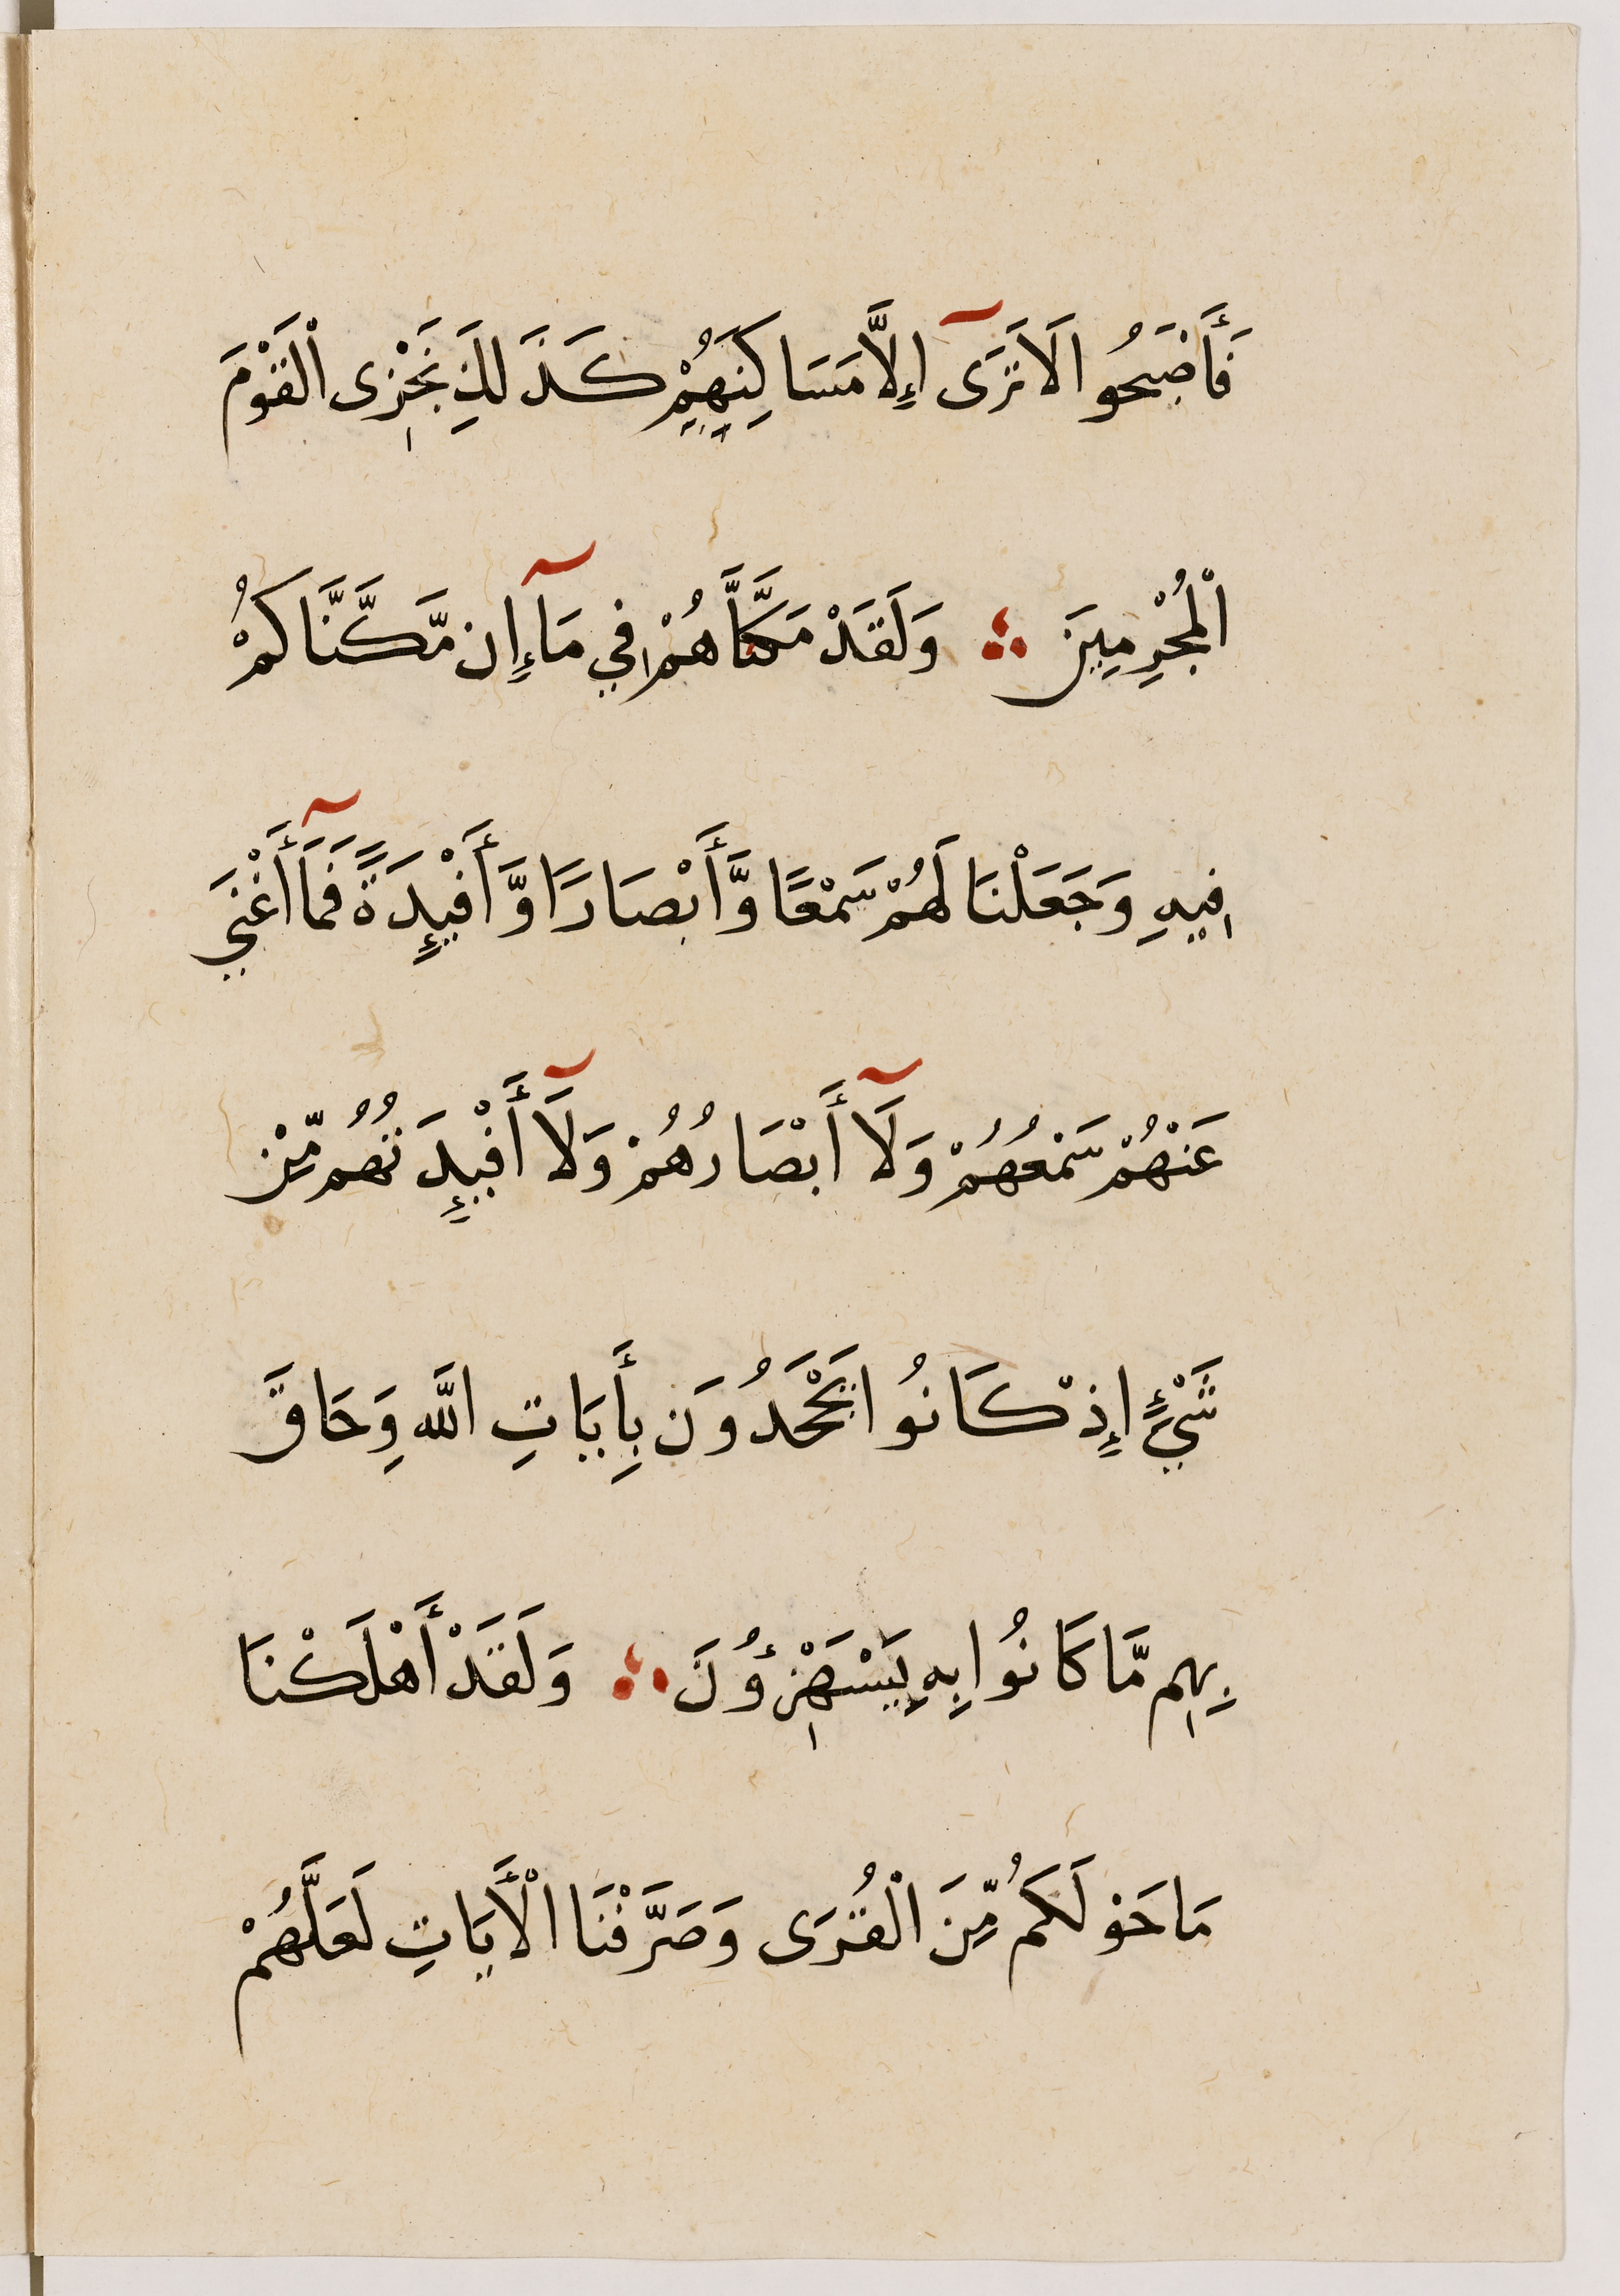 فَأَصْبَحُوا لَا تَرَى إِلَّا مَسَاكِنَهُمْ كَذَلِكَ نَجْزِى الْقَوْمَ
الْمُجْرِمِينَ ؞ وَلَقَدْ مَكَّنَّاهُمْ فِي مَآ إِن مَّكَّنَّاكُمْ
فِيهِ وَجَعَلْنَا لَهُمْ سَمْعًا وَّأَبْصَارًا وَّأَفْئِدَةً فَمَآ أَغْنَي
عَنْهُمْ سَمْعُهُمْ وَلَآ أَبْصَارُهُمْ وَلَآ أَفْئِدَتُهُم مِّنْ
شَيْءٍ إِذْ كَانُوا يَجْحَدُونَ بِأَيَاتِ اللَّهِ وَحَاقَ
بِهِم مَّا كَانُوا بِهِ يَسْتَهْزِؤُنَ ؞ وَلَقَدْ أَهْلَكْنَا
مَا حَوْلَكُم مِّنَ الْقُرَى وَصَرَّفْنَا الْأَيَاتِ لَعَلَّهُمْ